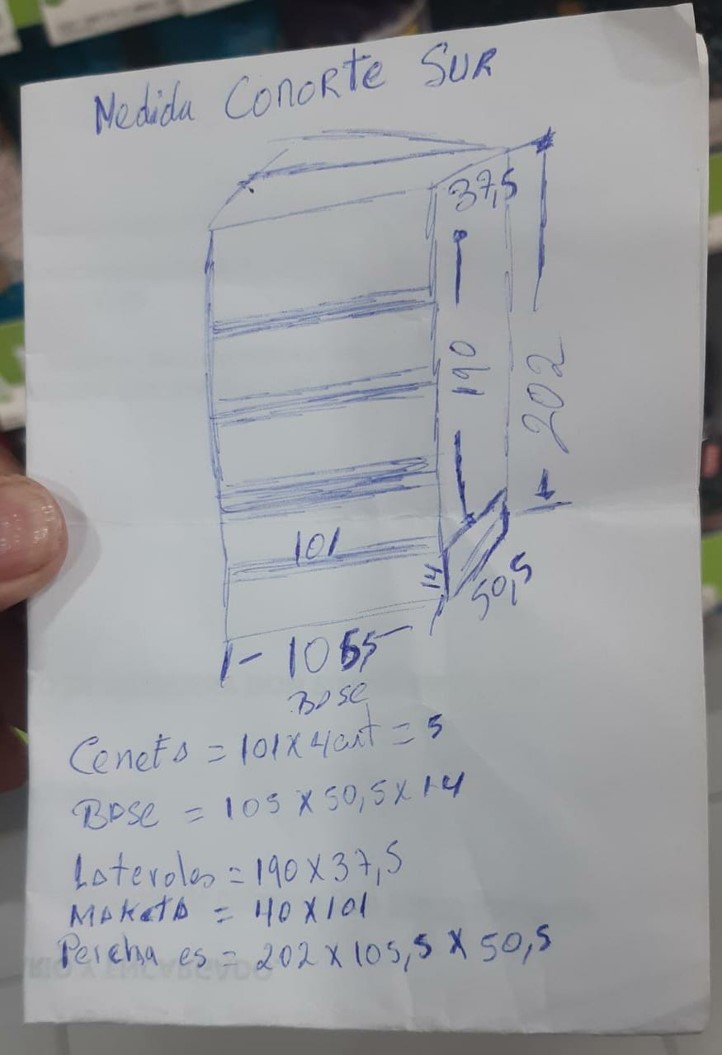 Medida Conorte Sur
37,5
190
202
101
14
50,5
1055
Base
Ceneta = 101 x 4 cant = 5
Base = 105 x 50,5 x 14
Laterales = 190 x 37,5
MAKetA = 40 x 101
Percha es = 202 x 105,5 x 50,5